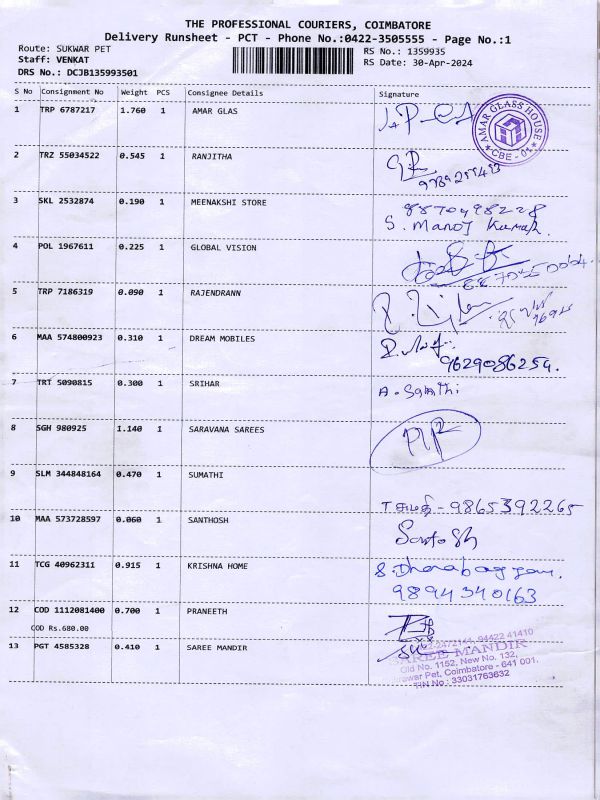 THE PROFESSIONAL COURIERS, COIMBATORE
Delivery Runsheet - PCT - Phone No.:0422-3505555 - Page No.:1
Route: SUKWAR PET
RS No.: 1359935
Staff: VENKAT
RS Date: 30-Apr-2024
DRS No.: DCJB135993501
S No Consignment No Weight PCS Consignee Details Signature
1 TRP 6787217 1.760 1 AMAR GLAS
AMAR GLASS HOUSE
CBE - 01
2 TRZ 55034522 0.545 1 RANJITHA
3 SKL 2532874 0.190 1 MEENAKSHI STORE 8870498228
S. Manoj Kumar.
4 POL 1967611 0.225 1 GLOBAL VISION
5 TRP 7186319 0.090 1 RAJENDRANN
6 MAA 574800923 0.310 1 DREAM MOBILES
9629086254.
7 TRT 5090815 0.300 1 SRIHAR
8 SGH 980925 1.140 1 SARAVANA SAREES
9 SLM 344848164 0.470 1 SUMATHI
T சுமதி - 9865392265
10 MAA 573728597 0.060 1 SANTHOSH
Santosh
11 TCG 40962311 0.915 1 KRISHNA HOME
9894340163
12 COD 1112081400 0.700 1 PRANEETH
COD Rs.680.00
13 PGT 4585328 0.410 1 SAREE MANDIR
94422 41410
SAREE MANDIR
Old No. 1152, New No. 132,
Pet, Coimbatore - 641 001.
TIN No : 33031763632